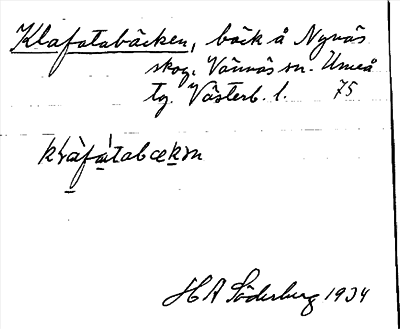 Klafatabäcken, bäck å Nynäs
skog, Vännäs sn. Umeå
tg. Västerb. l. 75
klàfátabækɳ
H A Söderberg 1934